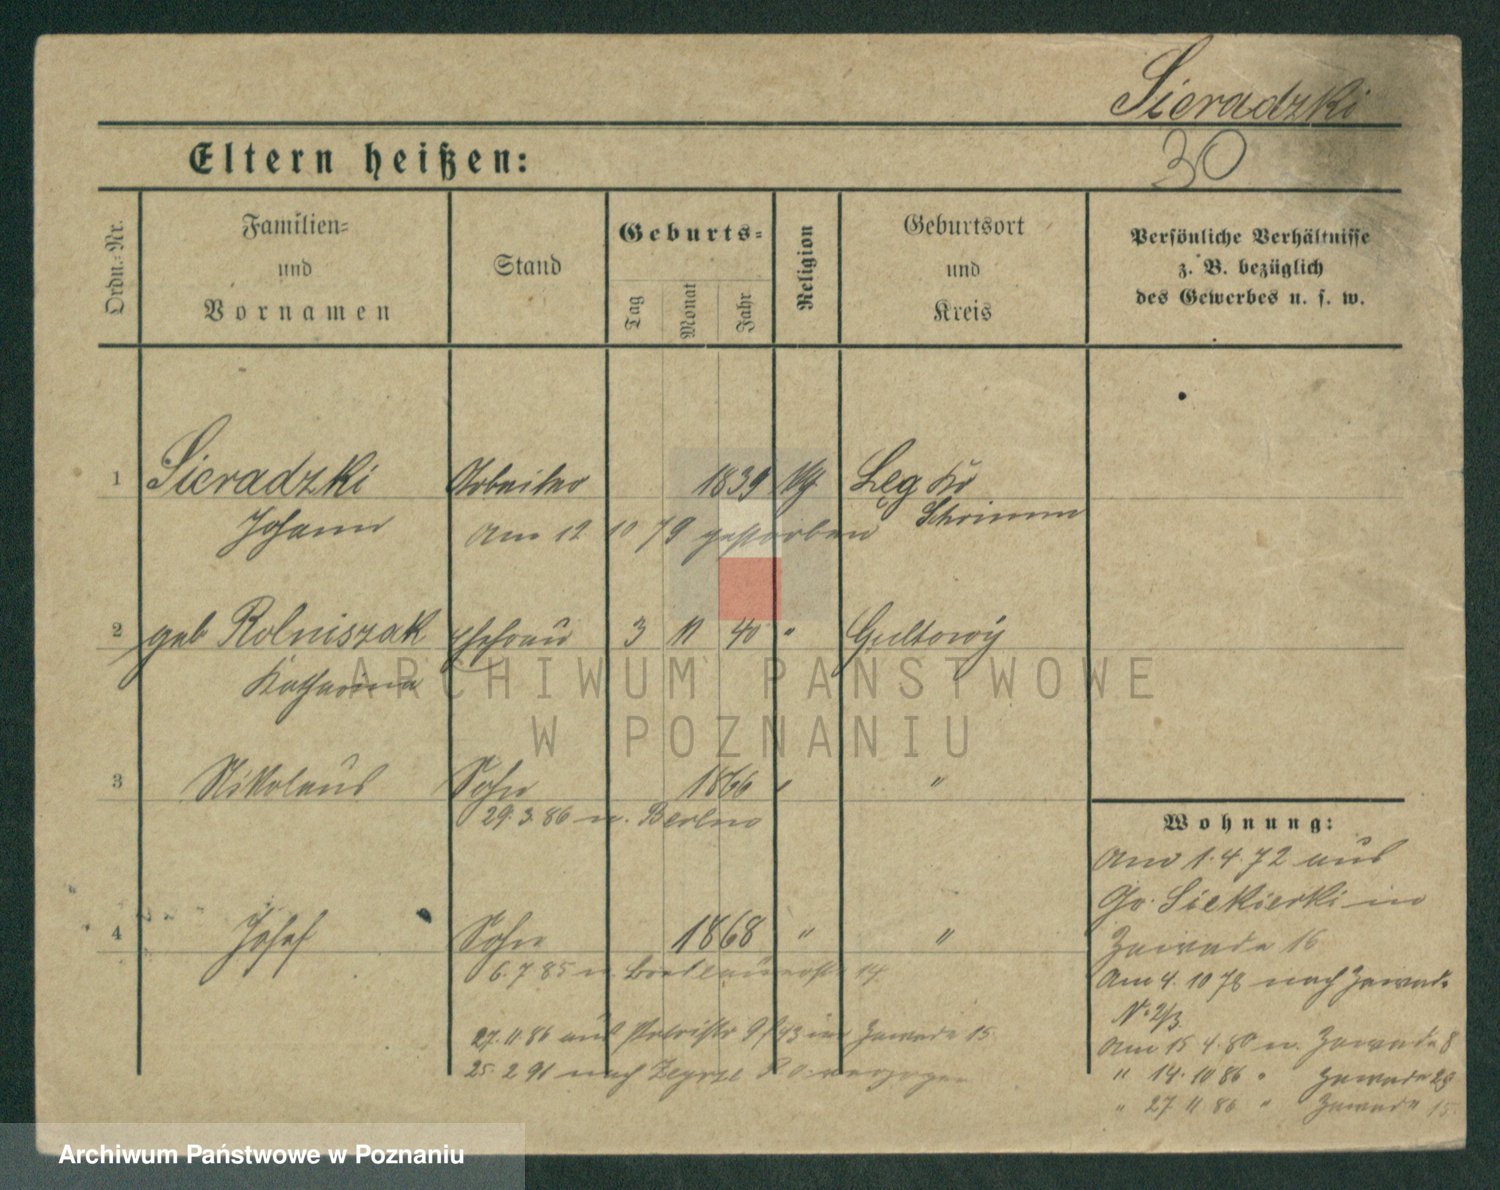 Sieradzki
30
Eltern heißen:
Ordn.-Nr.
Familien-
und
Vornamen
Stand
Geburts-
Tag
Monat
Jahr
Religion
Geburtsort
und
Kreis
Persönliche Verhältnisse
z. B. bezüglich
des Gewerbes u. s. w.
1 Sieradzki Arbeiter 1839 Łęg Kr
Johann Am 12 10 79 gestorben Schrimm
2 geb Rolniszak Ehefrau 3 11 40 " Gultowy
Katharina
3 Nikolaus Sohn 1866 " "
29.3 86 n. Berlin
4 Josef Sohn 1868 " "
6.7 85 n. 14
27.11.86 aus in Zawade 15
25 2 91 nach verzogen
Wohnung:
Am 1.4.72 aus
Gr. Siekierki in
Zawade 16
Am 4.10 78 nach Zawade
No 2/3
Am 15 4.80 n. Zawade 8
" 14.10 86 " Zawade 28
" 27 11 86 " Zawade 15
ARCHIWUM PAŃSTWOWE
W POZNANIU
Archiwum Państwowe w Poznaniu